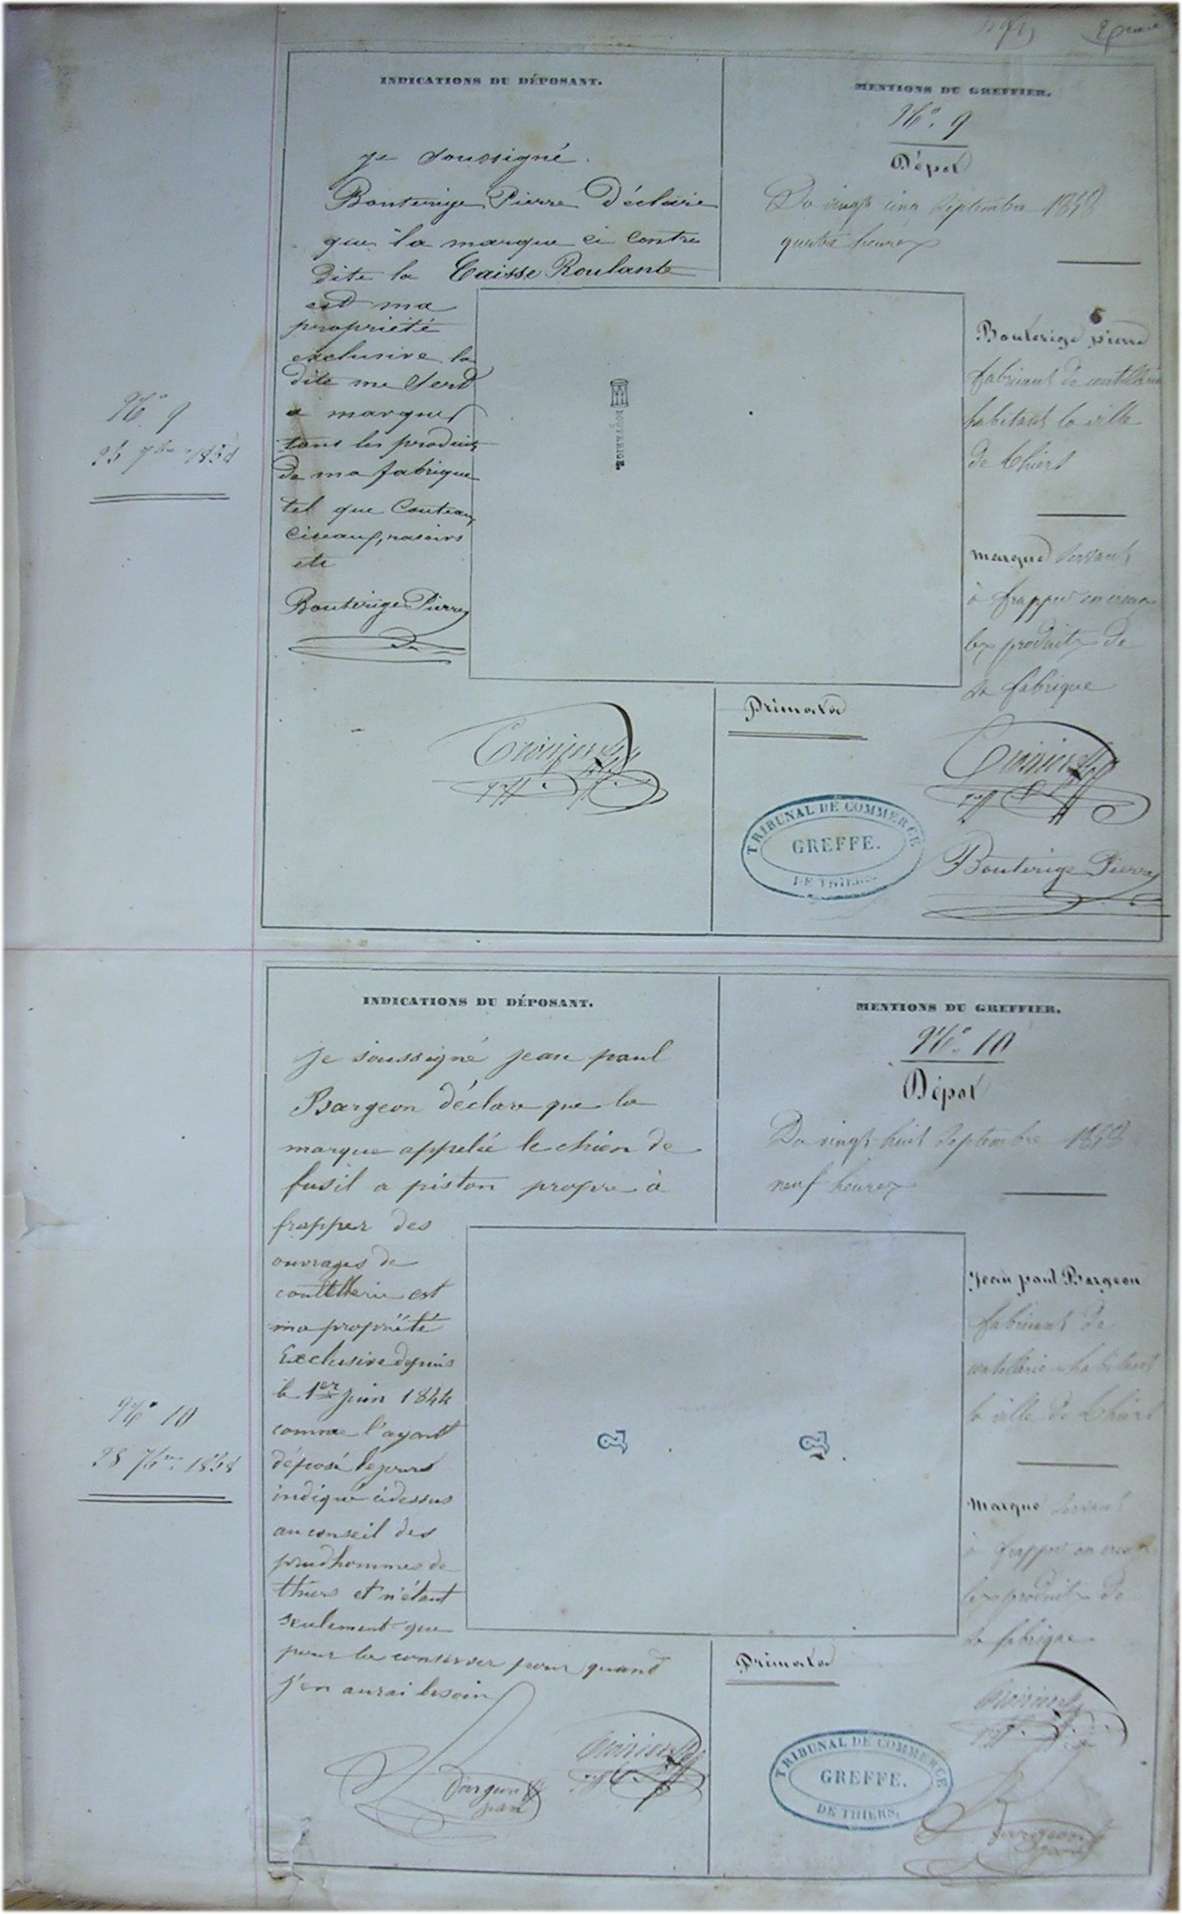 INDICATIONS DU DÉPOSANT.
je soussigné
Bouterige Pierre Déclare
que la marque ci contre
dite la Caisse Roulante
est ma
propriété
exclusive la
dite me sert
a marquer
tous les produits
de ma fabrique
tel que Couteau,
Ciseaux, rasoirs
etc
Bouterige Pierre
MENTIONS DU GREFFIER.
N° 9
Dépot
Du vingt cinq Septembre 1858
quatre heures
Bouterige pierre
fabricant de coutellerie
habitant la ville
de Thiers
marque servant
à frapper en creux
les produits de
sa fabrique
Primata
TRIBUNAL DE COMMERCE
GREFFE.
DE THIERS.
Bouterige Pierre
N° 9
25 7bre 1858
INDICATIONS DU DÉPOSANT.
je soussigné jean paul
Bargeon déclare que la
marque appelée le chien de
fusil a piston propre à
frapper des
ouvrages de
coutellerie est
ma propriété
Exclusive depuis
le 1er juin 1844
comme l'ayant
déposé le jours
indiqué cidessus
au conseil des
prudhommes de
thiers et n'étant
seulement que
pour la conserver pour quant
j'en aurai besoin
Bargeon
paul
MENTIONS DU GREFFIER.
N° 10
Dépot
Du vingt huit Septembre 1858
neuf heures
Jean paul Bargeon
fabricant de
coutellerie habitant
la ville de Thiers
Marque servant
à frapper en creux
les produits de
sa fabrique
Primata
TRIBUNAL DE COMMERCE
GREFFE.
DE THIERS.
Bargeon
paul
N° 10
28 7bre 1858